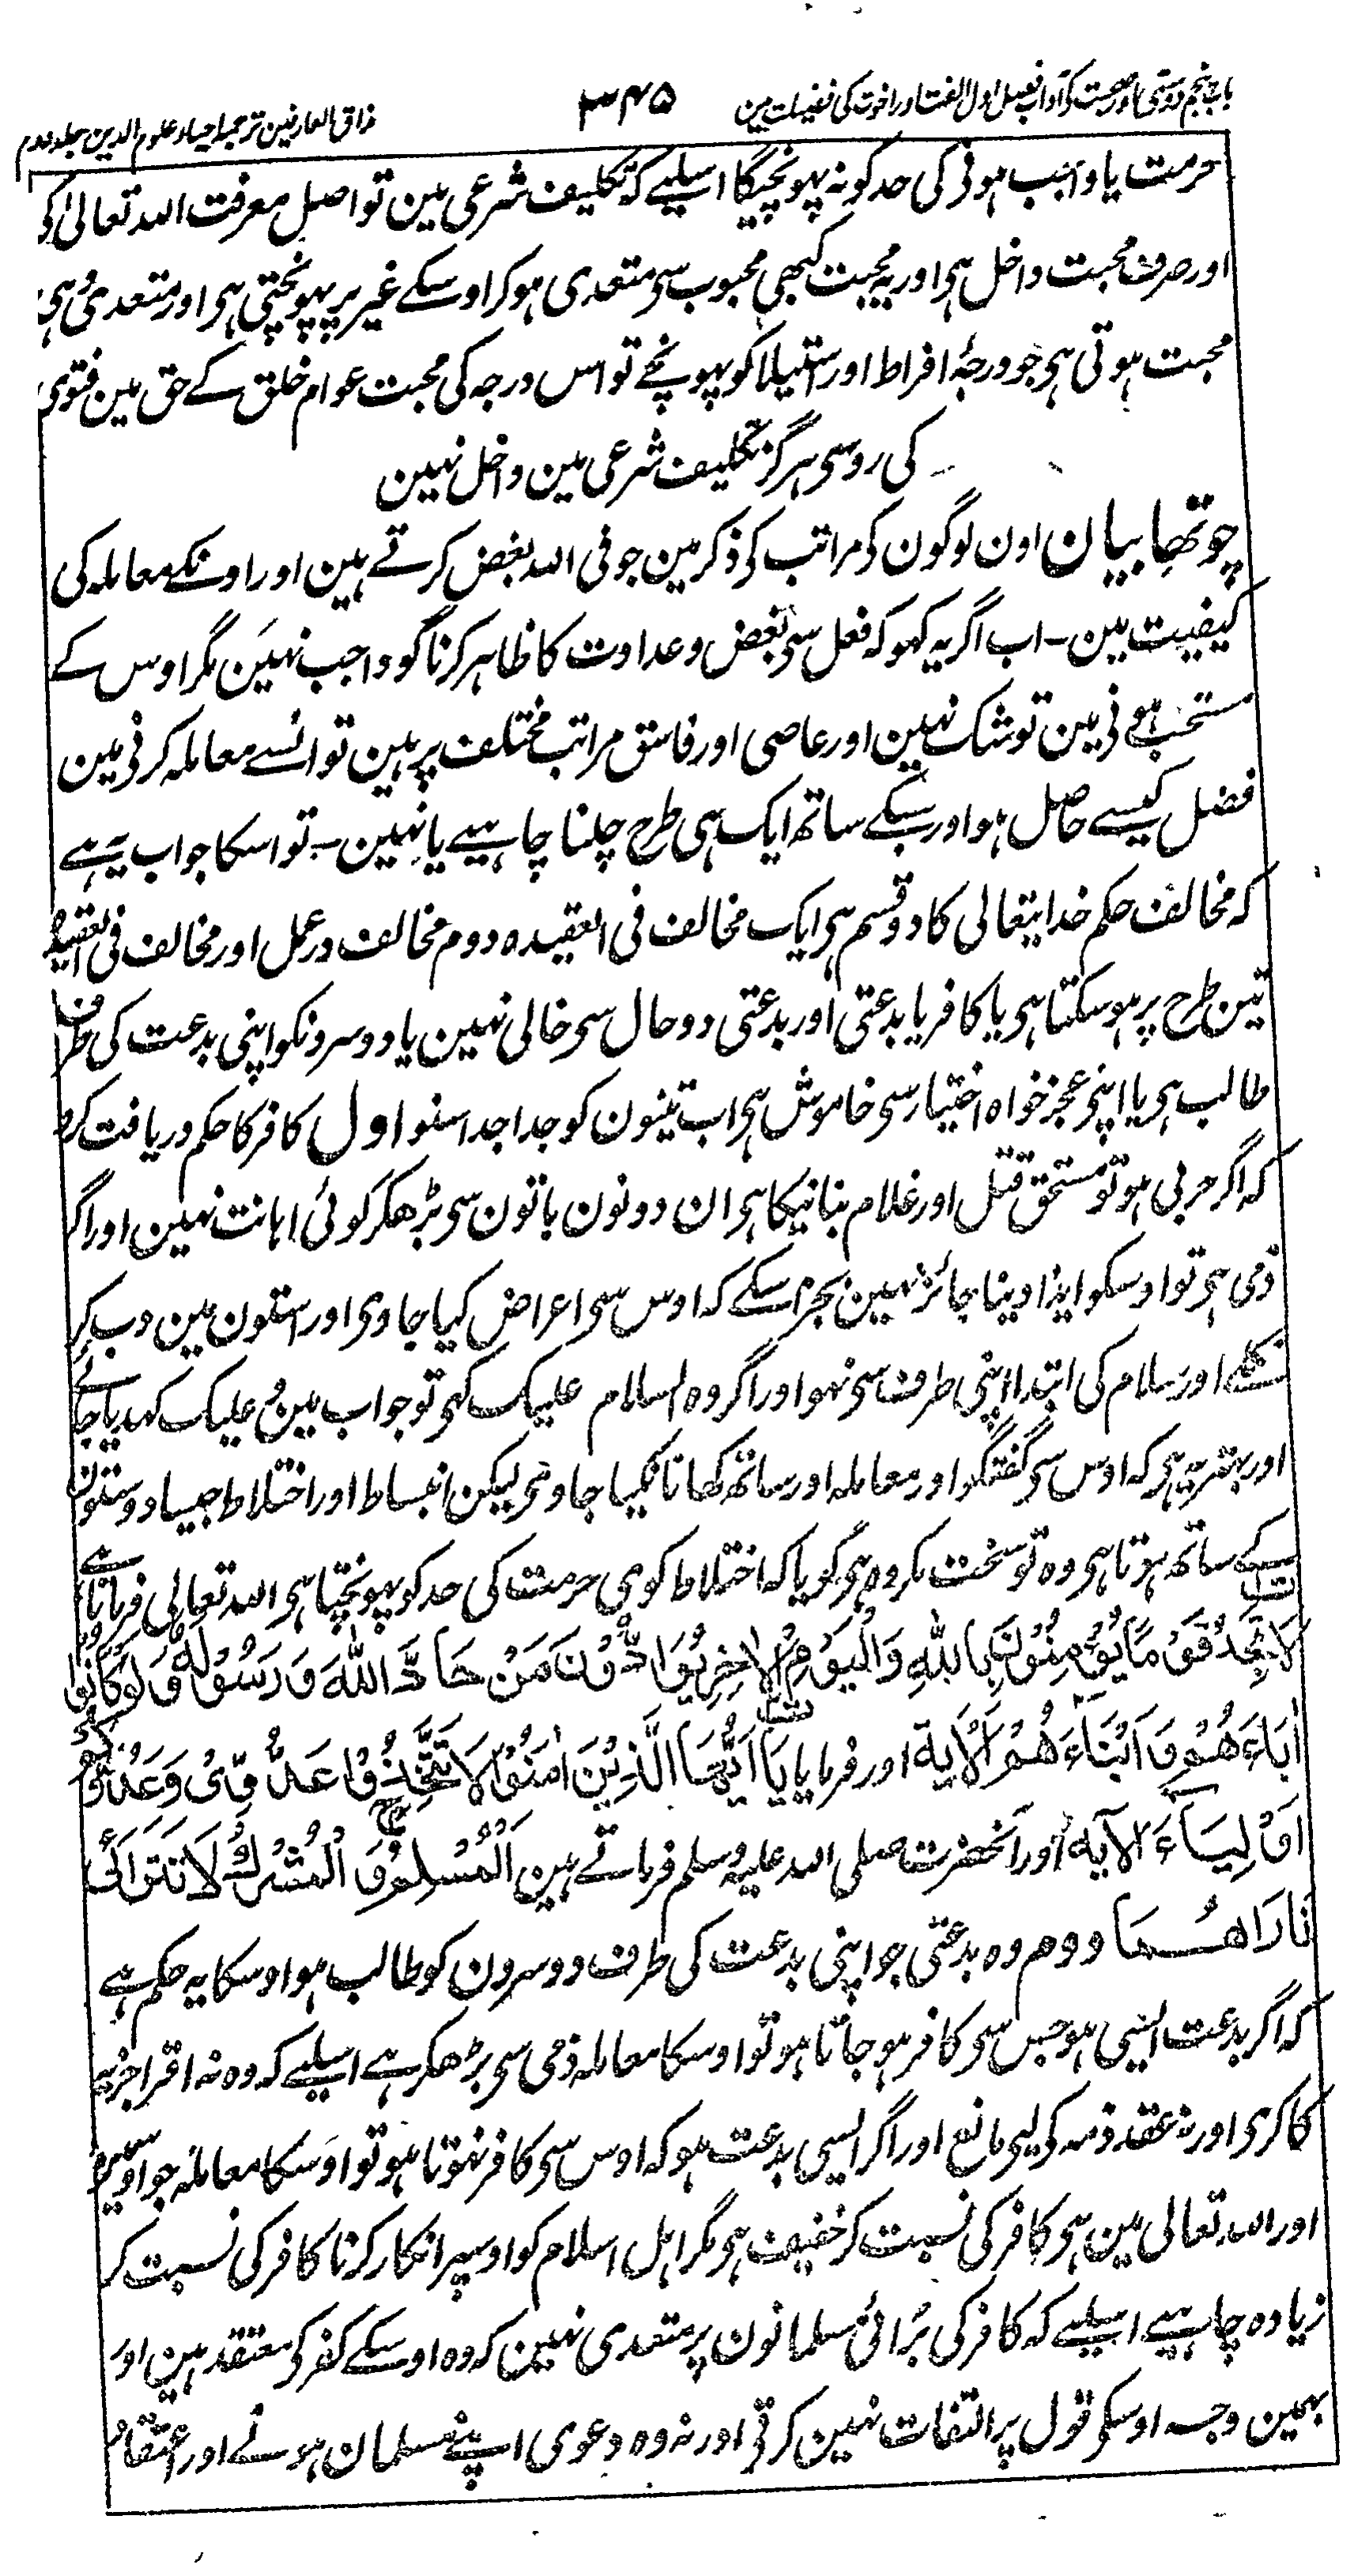 باب پنجم دوستی اور صحبت کے آداب فصل اول الفت اور اخوت کی فضیلت مین
۳۴۵
مذاق العارفین ترجمہ احیاء علوم الدین جلد دوم
حرمت یا واجب ہونی کی حد کو نہ پہونچیگا اسلیے کہ تکلیف شرعی مین تو اصل معرفت اللہ تعالیٰ کی
اور صرف محبت داخل ہی اور یہ محبت کبھی محبوب سی متعدی ہو کر اوسکے غیر پر پہونچتی ہی اور متعدی وہی
محبت ہوتی ہی جو درجۂ افراط اور استیلا کو پہونچے تو اس درجہ کی محبت عوام خلق کے حق مین فتوی
کی روسی ہرگز تکلیف شرعی مین داخل نہین
چوتھا بیان اون لوگون کو مراتب کی ذکر مین جو فی اللہ بغض کرتے ہین اور اونکے معاملہ کی
کیفیت مین - اب اگر یہ کہو کہ فعل سی بغض و عداوت کا ظاہر کرنا گو واجب نہین مگر اوس کے
مستحب ہونے مین تو شک نہین اور عاصی اور فاسق مراتب مختلف پر ہین تو انسے معاملہ کرنی مین
فضل کیسے حاصل ہو اور سبکے ساتھ ایک ہی طرح چلنا چاہیے یا نہین - تو اسکا جواب یہ ہے
کہ مخالف حکم خدایتعالی کا دو قسم ہی ایک مخالف فی العقیدہ دوم مخالف در عمل اور مخالف فی العقیدہ
تین طرح پر ہو سکتا ہی یا کافر یا بدعتی اور بدعتی دو حال سی خالی نہین یا دوسرونکو اپنی بدعت کی طرف
طالب ہی یا اپنی عجز خواہ اختیار سی خاموش ہی اب تینون کو جدا جدا سنو اول کافر کا حکم دریافت کرو
کہ اگر حربی ہو تو مستحق قتل اور غلام بنانیکا ہی ان دونون باتون سی بڑھکر کوئی اہانت نہین اور اگر
ذمی ہی تو اوسکو ایذا دینا جائز نہین بجز اسکے کہ اوس سی اعراض کیا جاوی اور رستون مین دب کر
نکلے اور سلام کی ابتدا اپنی طرف سی نہو اور اگر وہ السلام علیک کہی تو جواب مین و علیک کہدیا جائے
اور بہتر یہ ہی کہ اوس سی گفتگو اور معاملہ اور ساتھ کھانا نکیا جاوی لیکن انبساط اور اختلاط جیسا دوستون
کے ساتھ ہوتا ہی وہ تو سخت مکروہ ہی گویا کہ اختلاط کو بھی حرمت کی حد کو پہونچتا ہی اللہ تعالی فرماتا ہے
لَا تَجِدُ قَوْمًا يُؤْمِنُوْنَ بِاللّٰهِ وَالْيَوْمِ الْاٰخِرِ يُوَادُّوْنَ مَنْ حَادَّ اللّٰهَ وَرَسُوْلَهٗ وَلَوْ كَانُوْا
اٰبَاءَهُمْ اَوْ اَبْنَاءَهُمْ الْاٰية اور فرمایا يَا اَيُّهَا الَّذِيْنَ اٰمَنُوْا لَا تَتَّخِذُوْا عَدُوِّيْ وَعَدُوَّكُمْ
اَوْلِيَاءَ الآیہ اور آنحضرت صلی اللہ علیہ وسلم فرماتے ہین اَلْمُسْلِمُ وَ الْمُشْرِكُ لَا تَتَرَاٰى
نَارَاهُمَا دوم وہ بدعتی جو اپنی بدعت کی طرف دوسرون کو طالب ہو اوسکا یہ حکم ہے
کہ اگر بدعت ایسی ہو جس سی کافر ہو جاتا ہو تو اوسکا معاملہ ذمی سی بڑھکر ہے اسلیے کہ وہ نہ اقرار جزیہ
کا کری اور نہ عقد ذمہ کو لیی مانع اور اگر ایسی بدعت ہو کہ اوس سی کافر نہوتا ہو تو اوسکا معاملہ جو اوسمین
اور اللہ تعالی مین ہی کافر کی نسبت کر خفیف ہی مگر اہل اسلام کو اوسپر انکار کرنا کافر کی نسبت کر
زیادہ چاہیے اسلیے کہ کافر کی بُرائی مسلمانون پر متعدی نہین کہ وہ اوسکے کفر کی معتقد ہین اور
بہمین وجہ اوسکو قول پر التفات نہین کرتی اور نہ وہ دعوی اپنے مسلمان ہونے اور اعتقاد